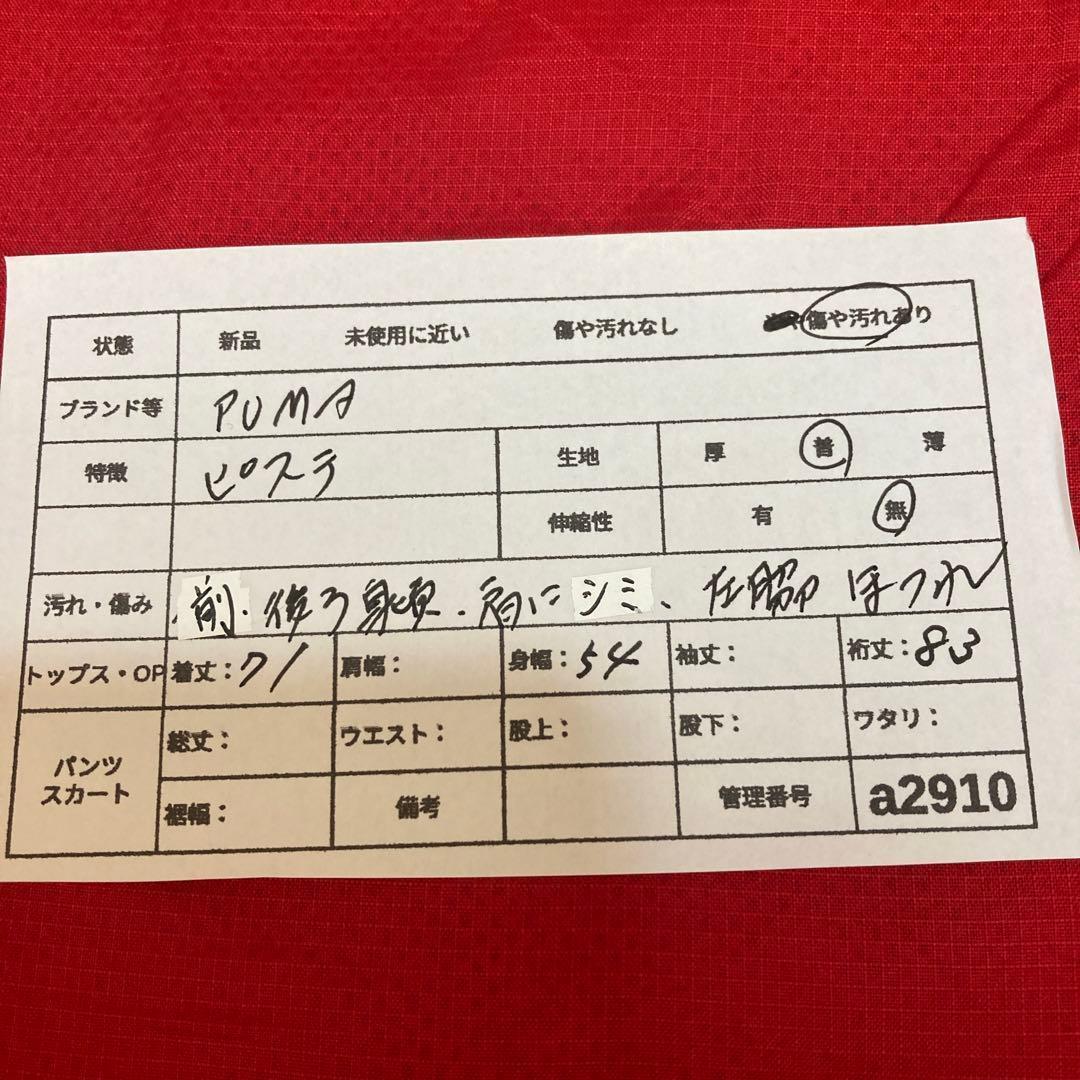 状態 新品 未使用に近い 傷や汚れなし 傷や汚れあり
ブランド等 PUMA
特徴 ピステ 生地 厚 普 薄
伸縮性 有 無
汚れ・傷み 前・後ろ身頃・肩にシミ、左脇ほつれ
トップス・OP 着丈:71 肩幅: 身幅:54 袖丈: 裄丈:83
パンツ スカート 総丈: ウエスト: 股上: 股下: ワタリ:
裾幅: 備考 管理番号 a2910